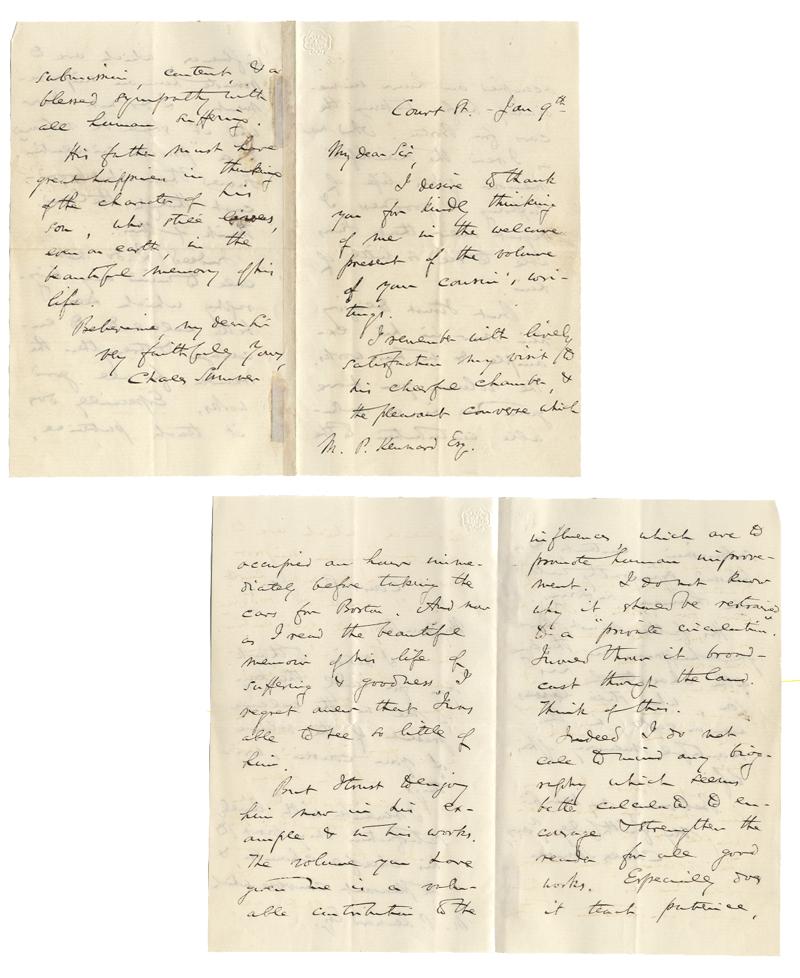 Court St. - Jan 9th
My dear Sir,
I desire to thank
you for kindly thinking
of me in the welcome
present of the volume
of your cousin's wri-
tings.
I remember with lively
satisfaction my visit to
his cheerful chamber, &
the pleasant converse which
M. P. Kennard Esq.
occupied an hour imme-
diately before taking the
cars for Boston. And now
as I read the beautiful
memoir of his life of
suffering & goodness I
regret anew that I was
able to see so little of
him.
But I trust to enjoy
him now in his ex-
ample & in his works.
The volume you have
given me is a valu-
able contribution to the
influences, which are to
promote human improve-
ment. I do not know
why it should be restrained
to a "private circulation".
I would throw it broad-
cast through the land.
Think of this.
Indeed I do not
call to mind any biog-
raphy which seems
better calculated to en-
courage & strengthen the
reader for all good
works. Especially does
it teach patience,
submission, content, & a
blessed sympathy with
all human suffering.
His father must have
great happiness in thinking
of the character of his
son, who still lives,
even on earth, in the
beautiful memory of his
life.
Believe me, my dear Sir
very faithfully Yours,
Charles Sumner